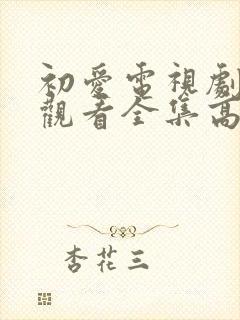 初愛電視劇
觀看全集高
杏花三